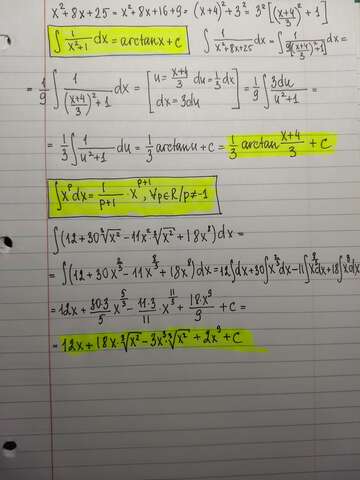 x²+8x+25 = x²+8x+16+9 = (x+4)²+3² = 3²[(x+4/3)²+1]
∫ 1/(x²+1) dx = arctanx+c   ∫ 1/(x²+8x+25) dx = ∫ 1/(9[(x+4/3)²+1]) dx =
= 1/9 ∫ 1/((x+4/3)²+1) dx = [u = x+4/3 du = 1/3 dx dx = 3du] = 1/9 ∫ 3du/(u²+1) =
= 1/3 ∫ 1/(u²+1) du = 1/3 arctan u + c = 1/3 arctan x+4/3 + c
∫ x^p dx = 1/(p+1) x^(p+1), ∀p∈R/p≠-1
∫(12+30 ³√x² − 11x² ³√x² + 18x⁸) dx =
= ∫(12+30x^(2/3) − 11x^(8/3) + 18x⁸) dx = 12∫dx + 30∫x^(2/3) dx − 11∫x^(8/3) dx + 18∫x⁸ dx
= 12x + 30·3/5 x^(5/3) − 11·3/11 x^(11/3) + 18x⁹/9 + c =
= 12x + 18x · ³√x² − 3x³ · ³√x² + 2x⁹ + c